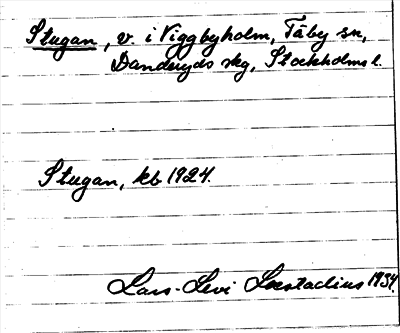 Stugan, v. i Viggbyholm, Täby sn,
Danderyds skg, Stockholms l.
Stugan, kb 1924.
Lars-Levi Læstadius 1934.